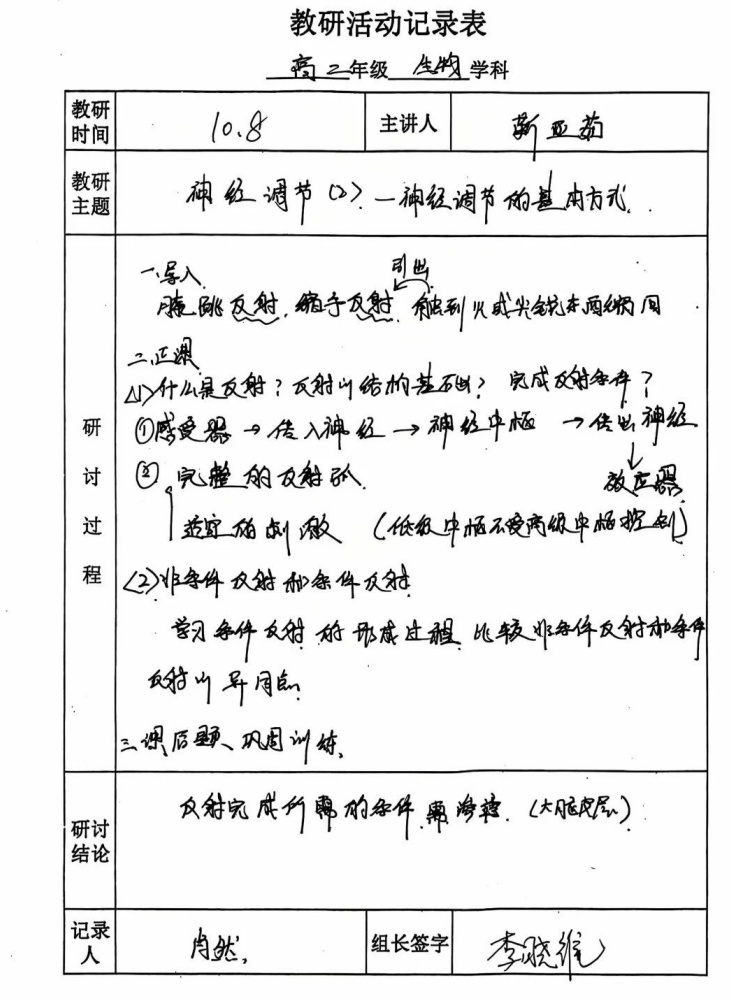 教研活动记录表
高二年级 生物学科
教研时间 10.8 主讲人 靳亚茹
教研主题 神经调节(2) —神经调节的基本方式.
研讨过程
一.导入 引出
膝跳反射,缩手反射. 触到火或尖锐东西缩回
二.正课
(1)什么是反射?反射的结构基础?完成反射条件?
①感受器→传入神经→神经中枢→传出神经
↓
② 完整的反射弧. 效应器
适宜的刺激 (低级中枢不受高级中枢控制)
(2)非条件反射和条件反射.
学习条件反射的形成过程 比较非条件反射和条件
反射的异同点.
三.课后题、巩固训练.
研讨结论 反射完成所需的条件.需 (大脑皮层)
记录人 肖然. 组长签字 李晓维